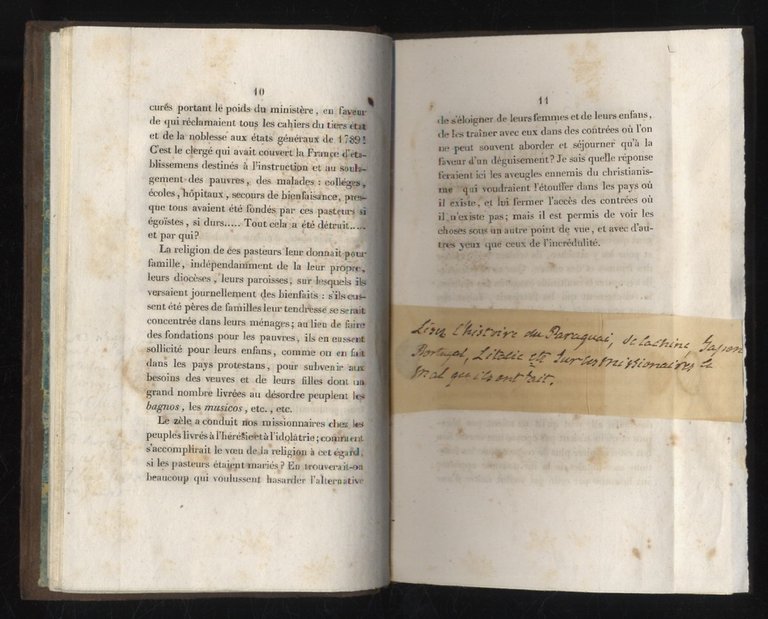 10
curés portant le poids du ministère, en faveur
de qui réclamaient tous les cahiers du tiers état
et de la noblesse aux états généraux de 1789!
C'est le clergé qui avait couvert la France d'éta-
blissemens destinés à l'instruction et au soula-
gement des pauvres, des malades : colléges,
écoles, hôpitaux, secours de bienfaisance, pres-
que tous avaient été fondés par ces pasteurs si
égoïstes, si durs..... Tout cela a été détruit.....
et par qui?
La religion de ces pasteurs leur donnait pour
famille, indépendamment de la leur propre,
leurs diocèses, leurs paroisses, sur lesquels ils
versaient journellement des bienfaits : s'ils eus-
sent été pères de familles leur tendresse se serait
concentrée dans leurs ménages; au lieu de faire
des fondations pour les pauvres, ils en eussent
sollicité pour leurs enfans, comme on en fait
dans les pays protestans, pour subvenir aux
besoins des veuves et de leurs filles dont un
grand nombre livrées au désordre peuplent les
bagnos, les musicos, etc., etc.
Le zèle a conduit nos missionnaires chez les
peuples livrés à l'hérésie et à l'idolâtrie; comment
s'accomplirait le vœu de la religion à cet égard,
si les pasteurs étaient mariés? En trouverait-on
beaucoup qui voulussent hasarder l'alternative
11
de s'éloigner de leurs femmes et de leurs enfans,
de les traîner avec eux dans des contrées où l'on
ne peut souvent aborder et séjourner qu'à la
faveur d'un déguisement? Je sais quelle réponse
feraient ici les aveugles ennemis du christianis-
me qui voudraient l'étouffer dans les pays où
il existe, et lui fermer l'accès des contrées où
il n'existe pas; mais il est permis de voir les
choses sous un autre point de vue, et avec d'au-
tres yeux que ceux de l'incrédulité.
Lisez l'histoire du Paraguai, de la chine Japon
Portugal, L'italie etc sur les missionaires le
mal qu'ils ont fait.